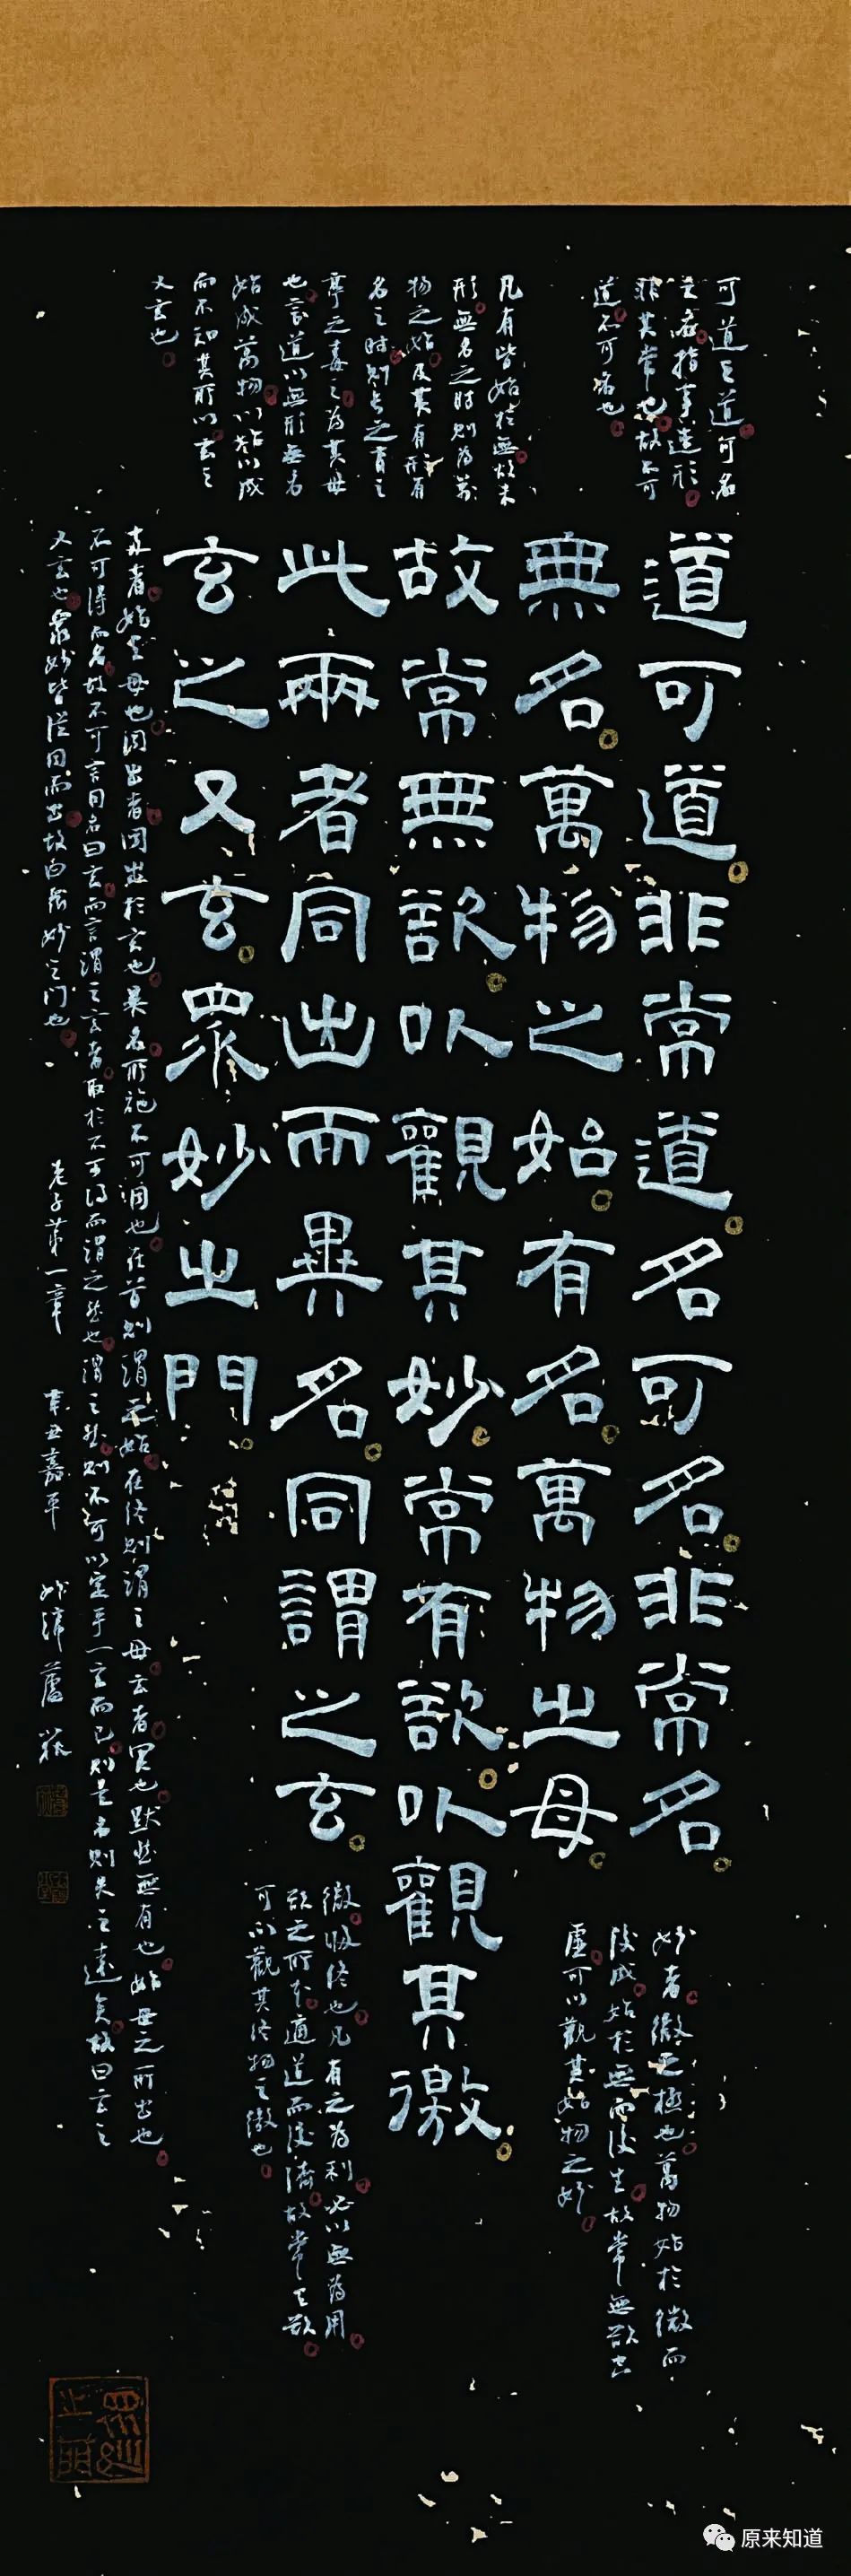 可道之道可名
之名指事造形
非其常也故不可
道不可名也
凡有皆始於無故未
形無名之時則為萬
物之始及其有形有
名之時則長之育之
亭之毒之為其母
也言道以無形無名
始成萬物以始以成
而不知其所以玄之
又玄也
道可道非常道名可名非常名
無名萬物之始有名萬物之母
故常無欲以觀其妙常有欲以觀其徼
此兩者同出而異名同謂之玄
玄之又玄眾妙之門
妙者微之極也萬物始於微而
後成始於無而後生故常無欲空
虛可以觀其始物之妙
徼歸終也凡有之為利必以無為用
欲之所本適道而後濟故常有欲
可以觀其終物之徼也
兩者始與母也同出者同出於玄也異名所施不可同也在首則謂之始在終則謂之母玄者冥也默然無有也始母之所出也
不可得而名故不可言同名曰玄而言謂之玄者取於不可得而謂之然也謂之然則不可以定乎一玄而已則是名則失之遠矣故曰玄之
又玄也眾妙皆從同而出故曰眾妙之門也
老子第一章
辛丑嘉平
眾妙之門
原来知道